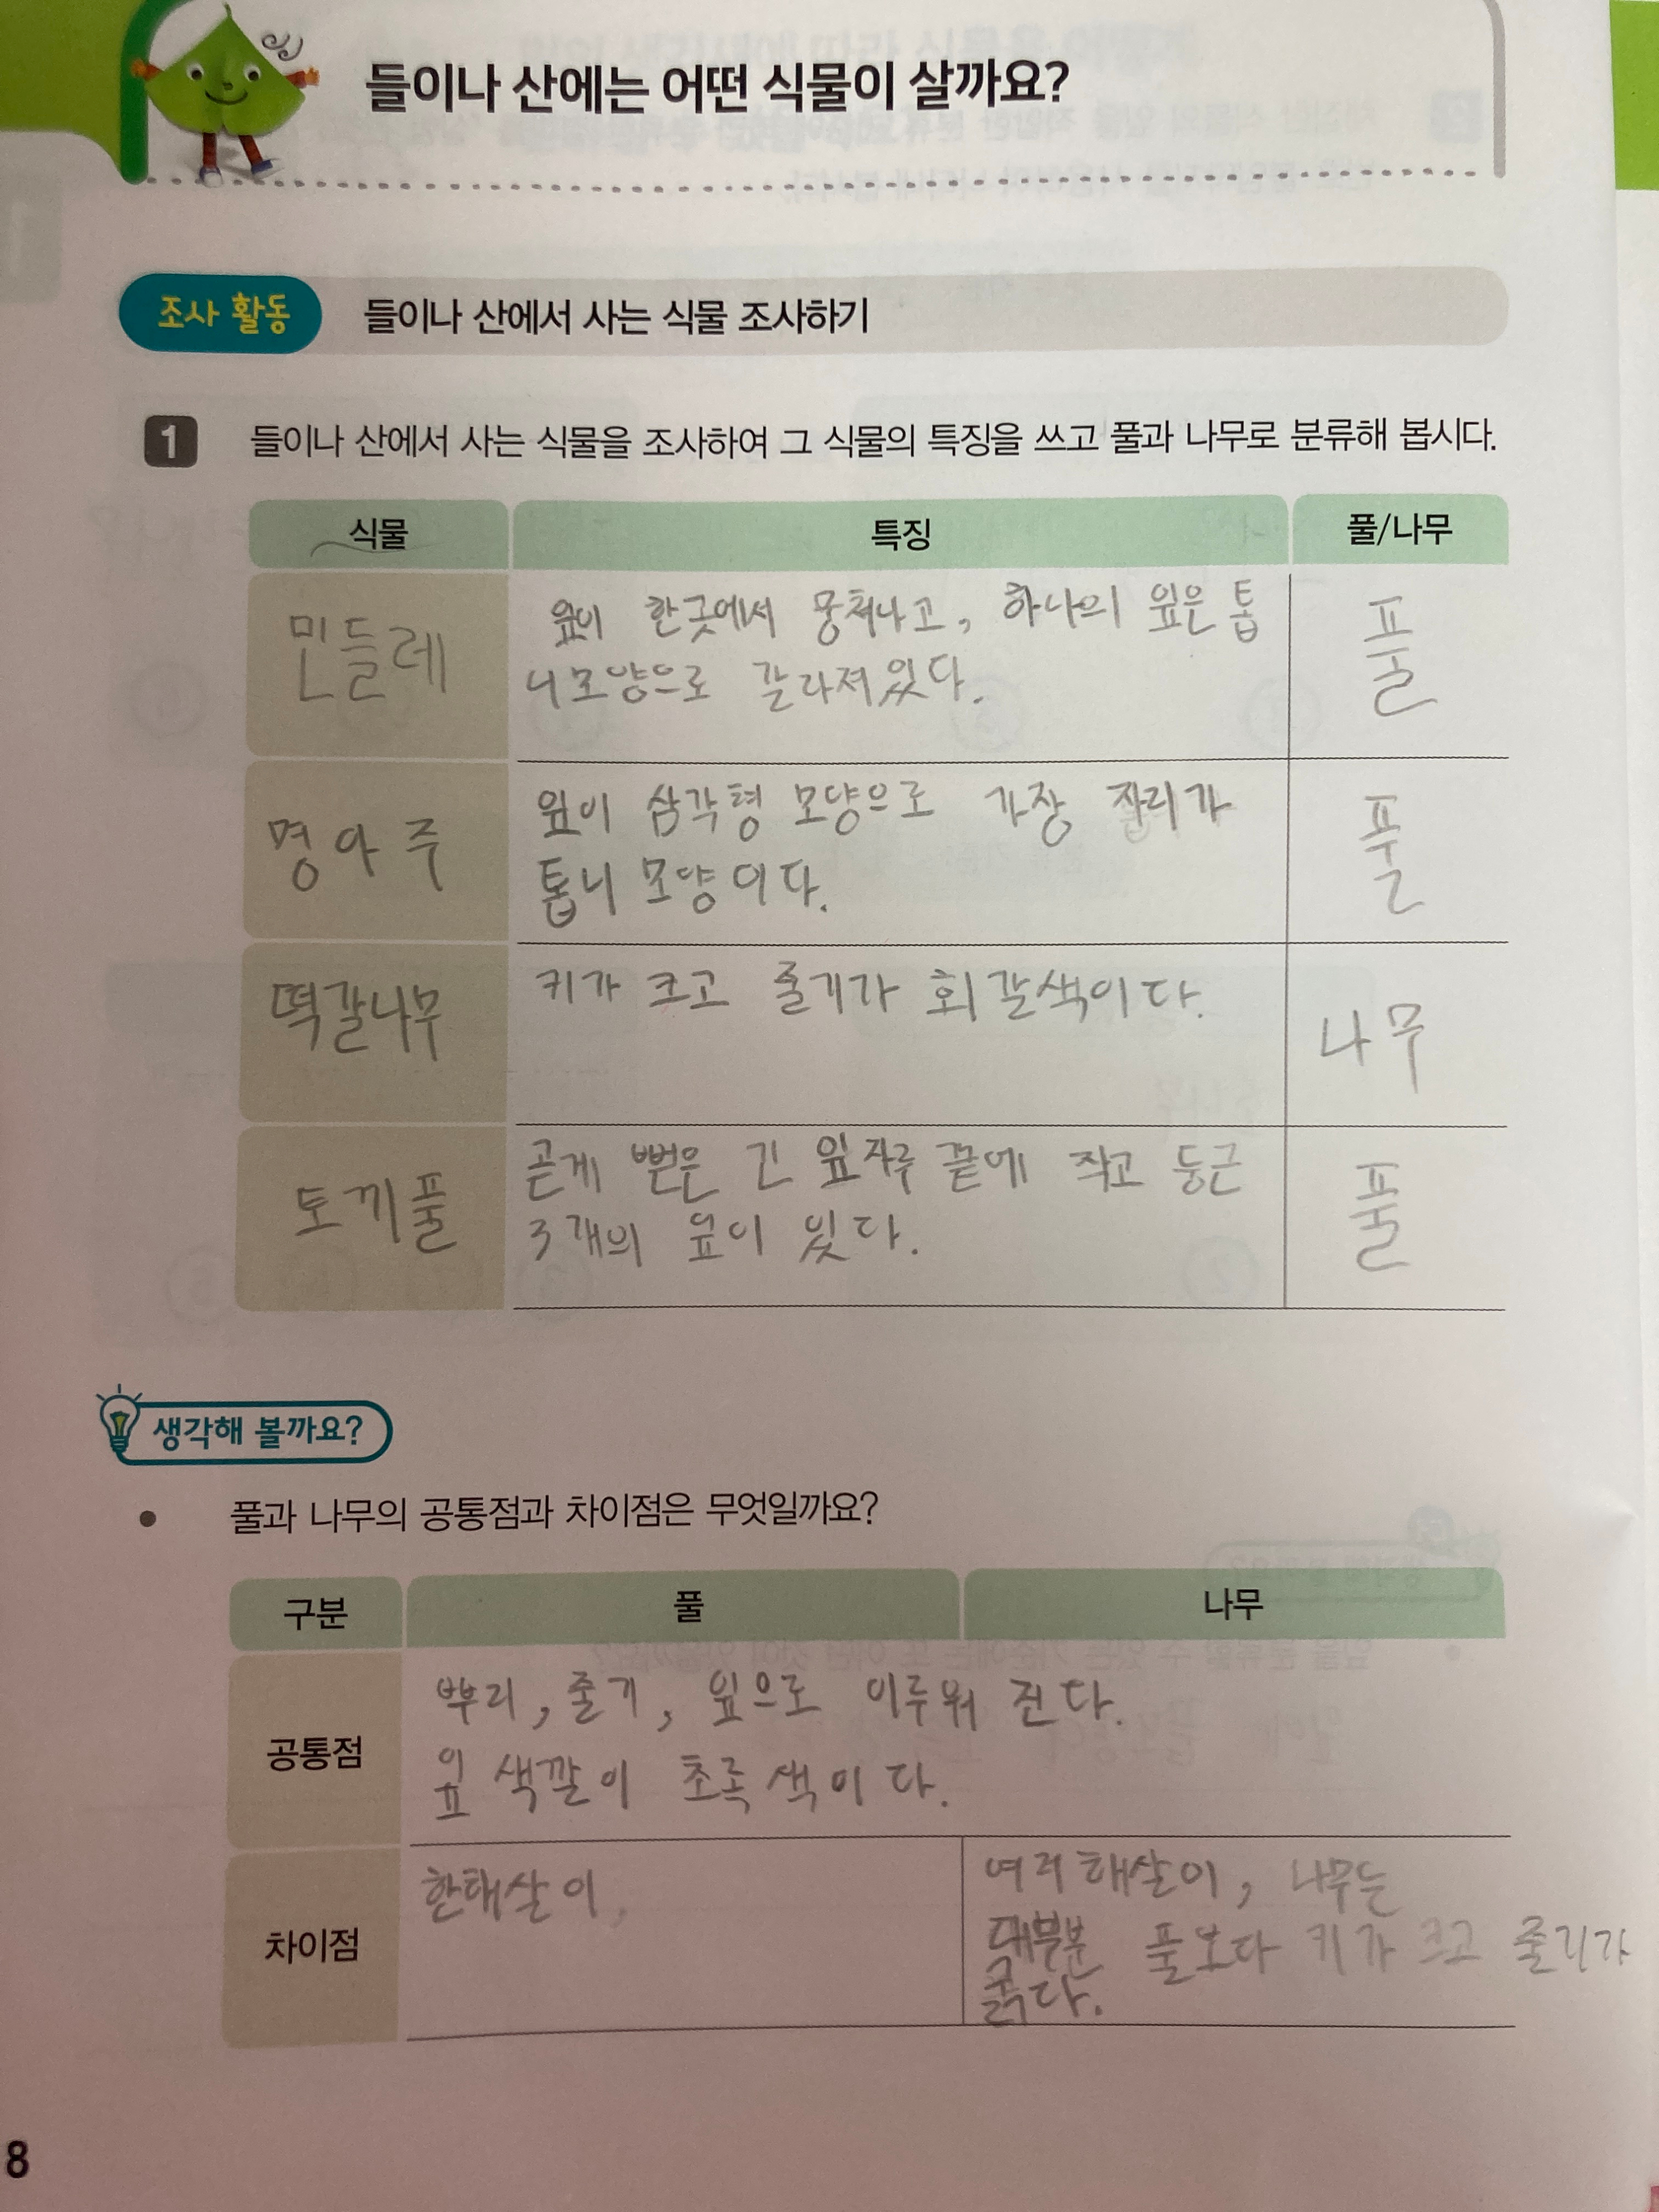 들이나 산에는 어떤 식물이 살까요?
조사 활동 들이나 산에서 사는 식물 조사하기
1 들이나 산에서 사는 식물을 조사하여 그 식물의 특징을 쓰고 풀과 나무로 분류해 봅시다.
식물 특징 풀/나무
민들레
잎이 한곳에서 뭉쳐나고, 하나의 잎은 톱
니모양으로 갈라져있다.
풀
명아주
잎이 삼각형 모양으로 가장 자리가
톱니 모양이다.
풀
떡갈나무
키가 크고 줄기가 회갈색이다.
나무
토끼풀
곧게 뻗은 긴 잎자루 끝에 작고 둥근
3개의 잎이 있다.
풀
생각해 볼까요?
• 풀과 나무의 공통점과 차이점은 무엇일까요?
구분 풀 나무
공통점
뿌리, 줄기, 잎으로 이루워 진다.
잎 색깔이 초록색이다.
차이점
한해살이,
여러해살이, 나무는
대부분 풀보다 키가 크고 줄기가
굵다.
8